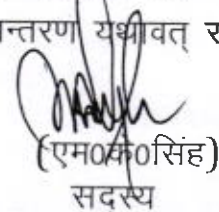 न्तरण यथावत् स
(एम0के0सिंह)
सदस्य